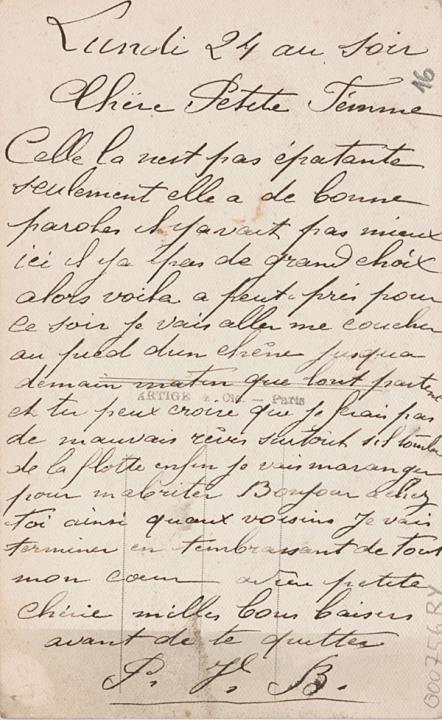 Lundi 24 au soir
16
Chère Petite Femme
Celle la nest pas épatante
seulement elle a de bonne
paroles il y avait pas mieux
ici il y a pas de grand choix
alors voila a peut près pour
ce soir je vais aller me coucher
au pied dun chêne jusqua
demain matin que lont partent
ARTIGE & Cie - Paris
et tu peux croire que je ferais pas
de mauvais rèves surtout sil tombe
de la flotte enfin je vais maranger
pour mabriter Bonjour a chez
toi ainsi quaux voisins Je vais
terminer en tembrassant de tout
mon cœur adieu petite
chérie milles bons baisers
avant de te quitter
P. J. B.
000756RY